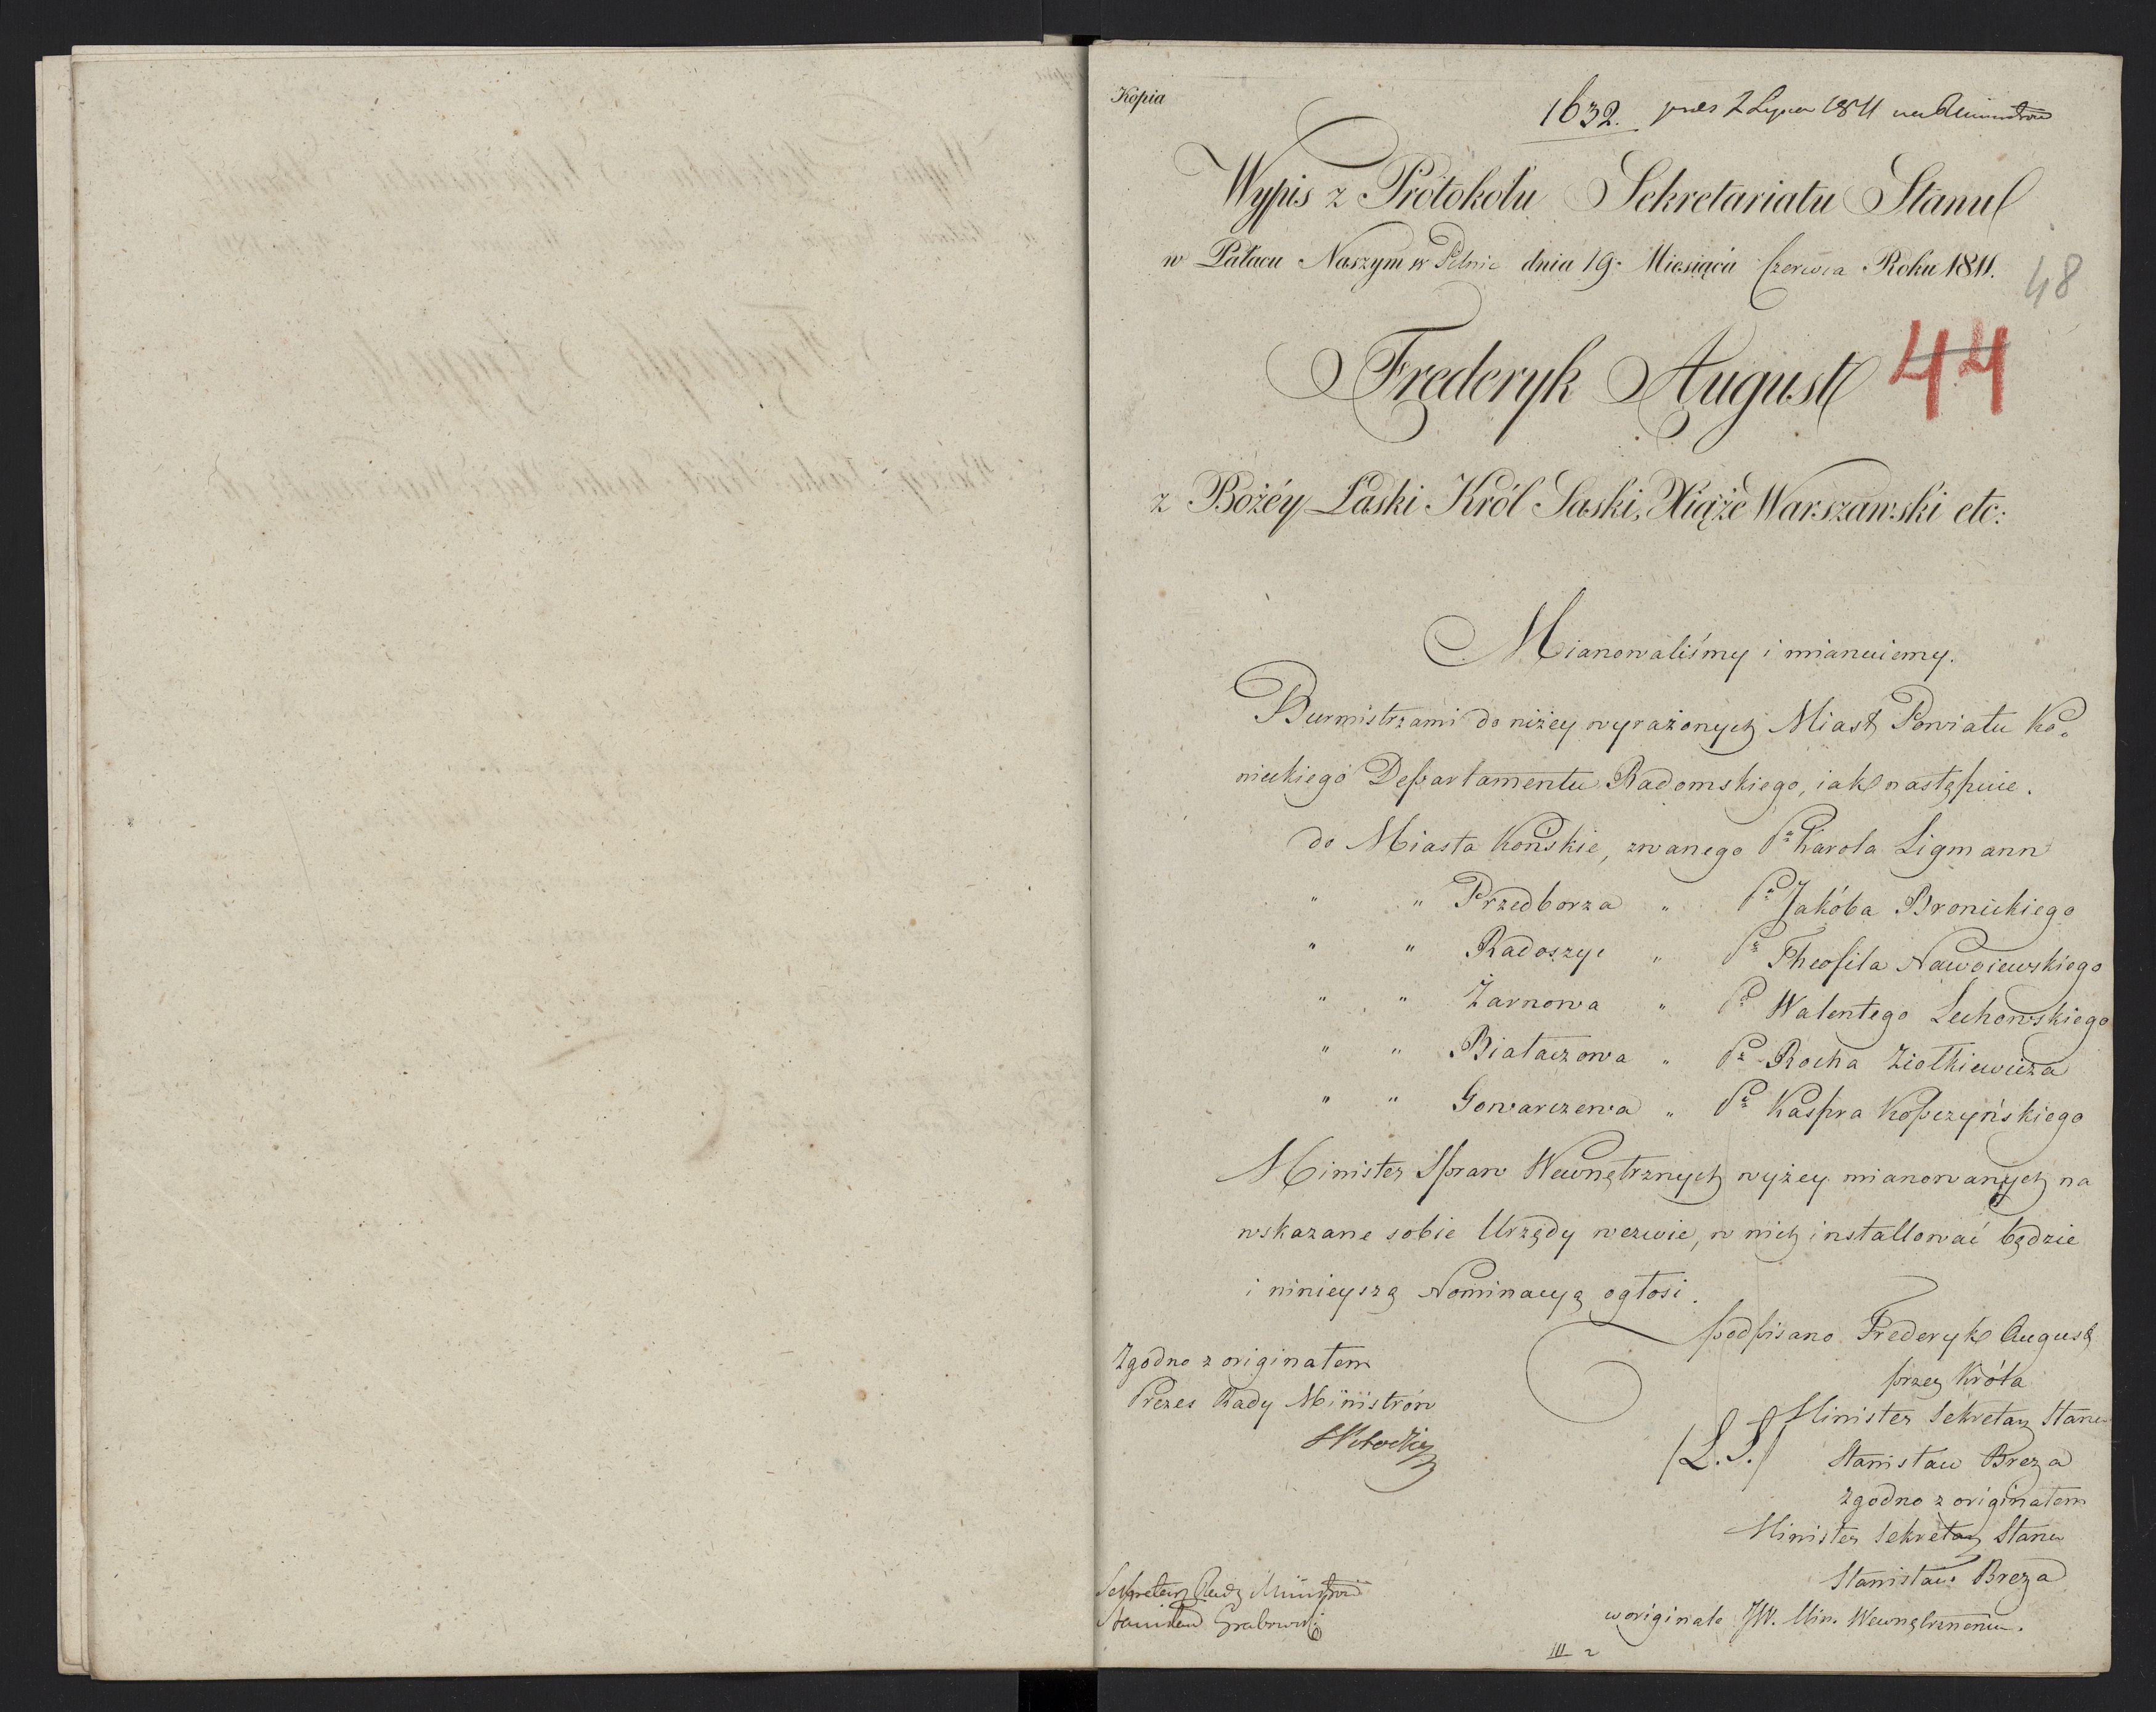 Kopia
1632. 2 Lipca 1811
Wypis z Protokołu Sekretariatu Stanu
w Pałacu Naszym w Pilnic dnia 19. Miesiąca Czerwca Roku 1811.
48
Frederyk August
44
z Bożéy Łaski Król Saski, Xiąże Warszawski etc:
Mianowaliśmy i mianuiemy.
Burmistrzami do niżey wyrażonych Miast Powiatu Ko-
nieckiego Departamentu Radomskiego, iak następuie.
do Miasta Końskie, zwanego Pa Karola Ligmann
" " Przedborza " Pa Jakóba Bronickiego
" " Radoszyc " Pa Theofila Nawoiewskiego
" " Żarnowa " Pa Walentego Lechowskiego
" " Białaczowa " Pa Rocha Ziołkiewicza
" " Gowarczewa " Pa Kaspra Kopczyńskiego
Minister Spraw Wewnętrznych wyżey mianowanych na
wskazane sobie Urzędy wezwie, w nich installować będzie
i ninieyszą Nominacyą ogłosi.
podpisano Frederyk August
przez Króla
Minister Sekretarz Stanu
/L.S./ Stanisław Breza
Zgodno z originałem
Minister Sekretarz Stanu
Stanisław Breza
w originale JW. Min. Wewnętrznemu.
Zgodno z originałem
Prezes Rady Ministrów
Sekretarz Rady Ministrów
Stanisław Grabowski
III 2